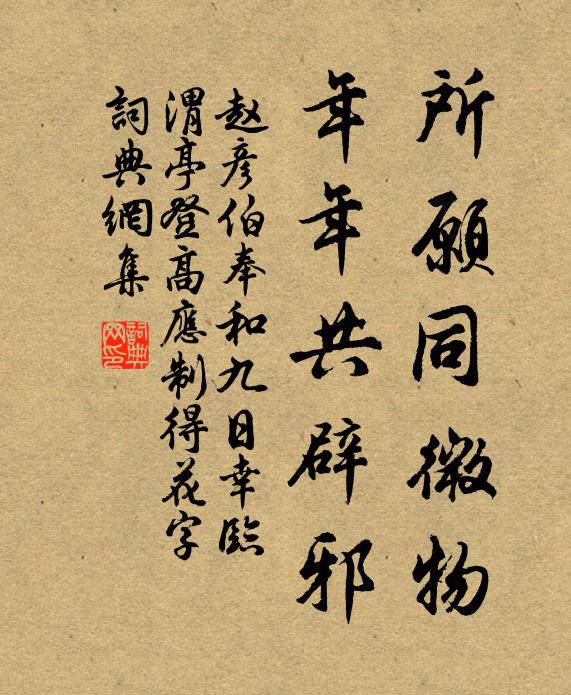 所願同微物
年年共辟邪
赵彦伯奉和九日幸臨
渭亭登高應制得花字
詞典網集
詞典网印